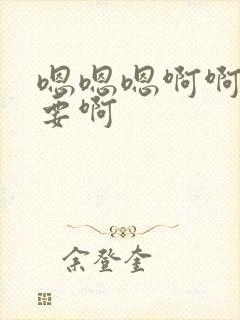 嗯嗯嗯啊啊
要啊
余登奎